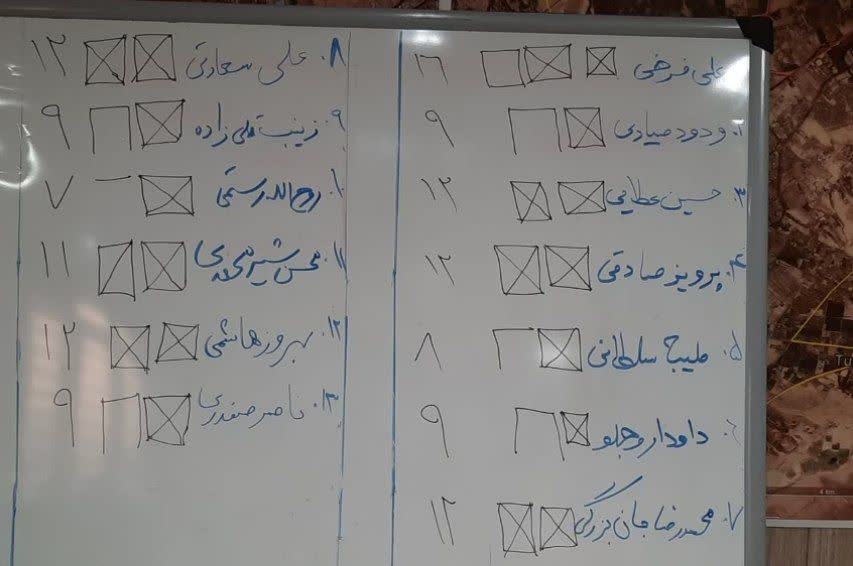 علی فرخی ۱۶
۲. ودود صیادی ۹
۳. حسین عطایی ۱۲
۴. پرویز صادقی ۱۲
۵. ملیح سلطانی ۸
داود اروجلو ۹
۷. محمدرضا جان بزرگی ۱۲
۸. علی سعادتی ۱۲
۹. زینب قلی زاده ۹
۱۰. روح الله رستمی ۷
۱۱. محسن شیرمحمدی ۱۱
۱۲. بهروز هاشمی ۱۲
۱۳. ناصر صفدری ۹
4 km